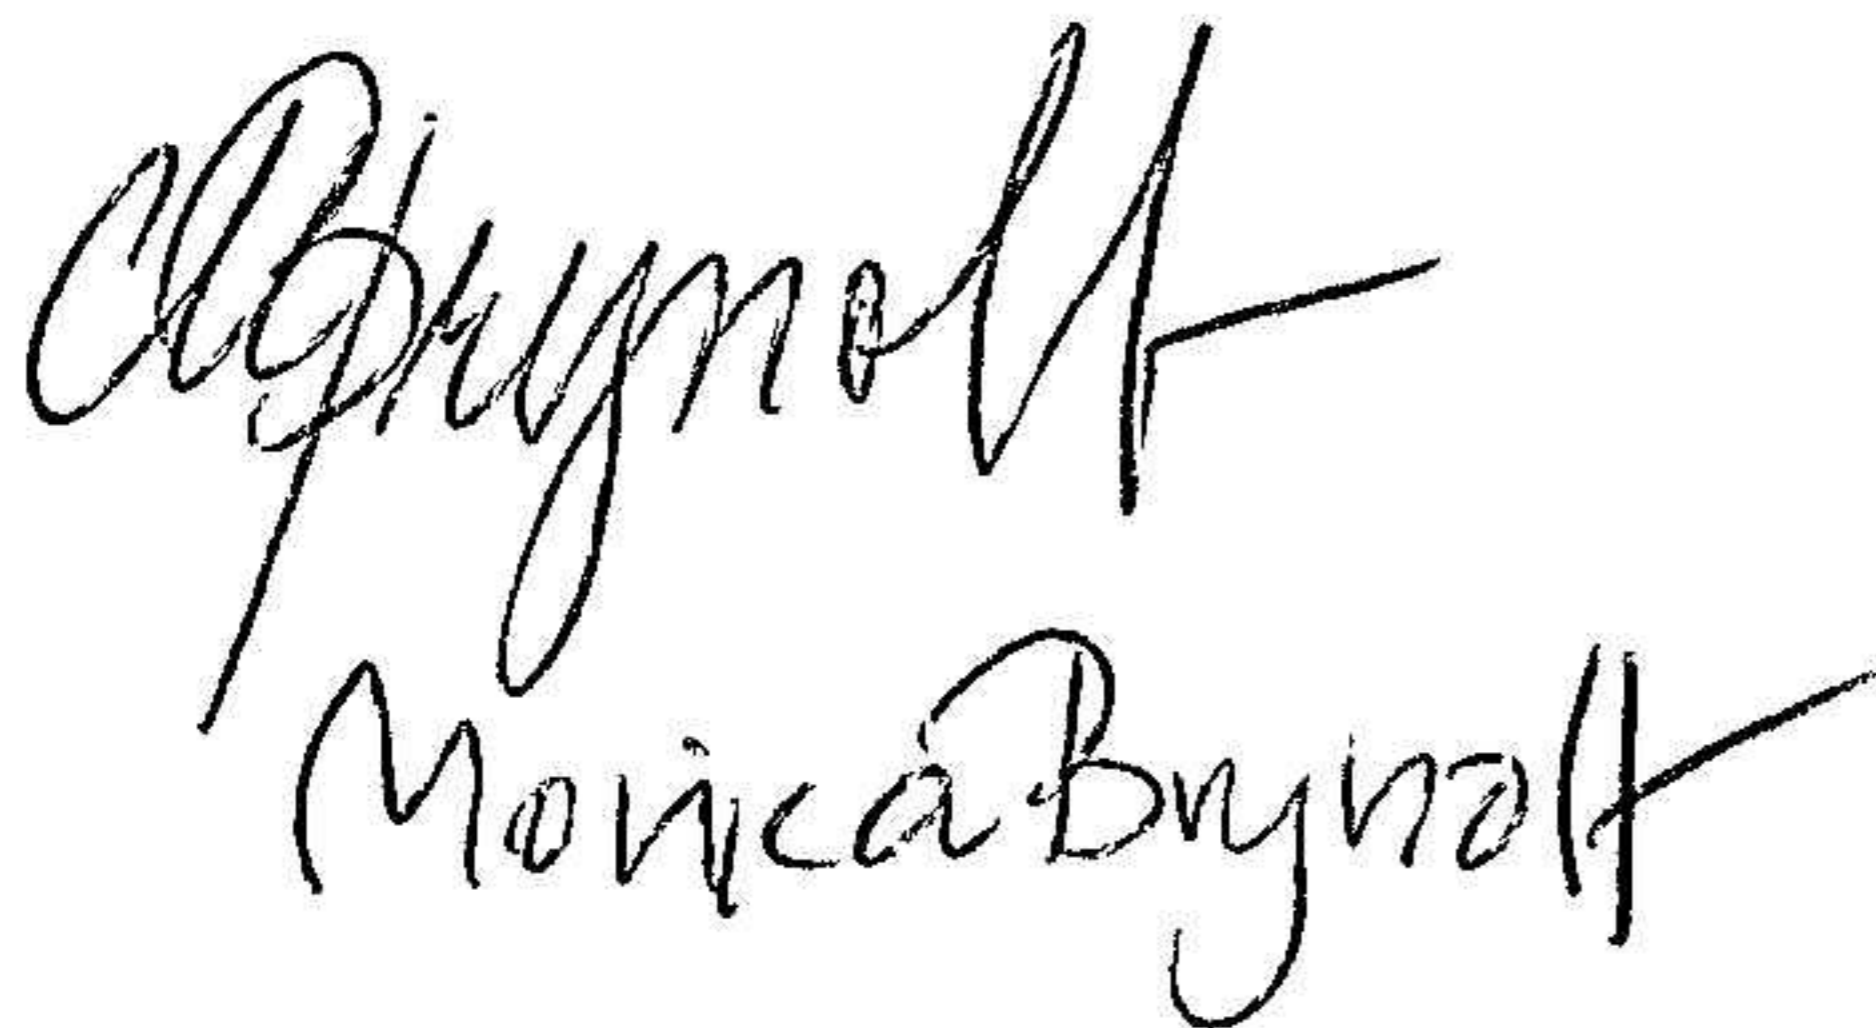 Brynolt
Monica Brynolt